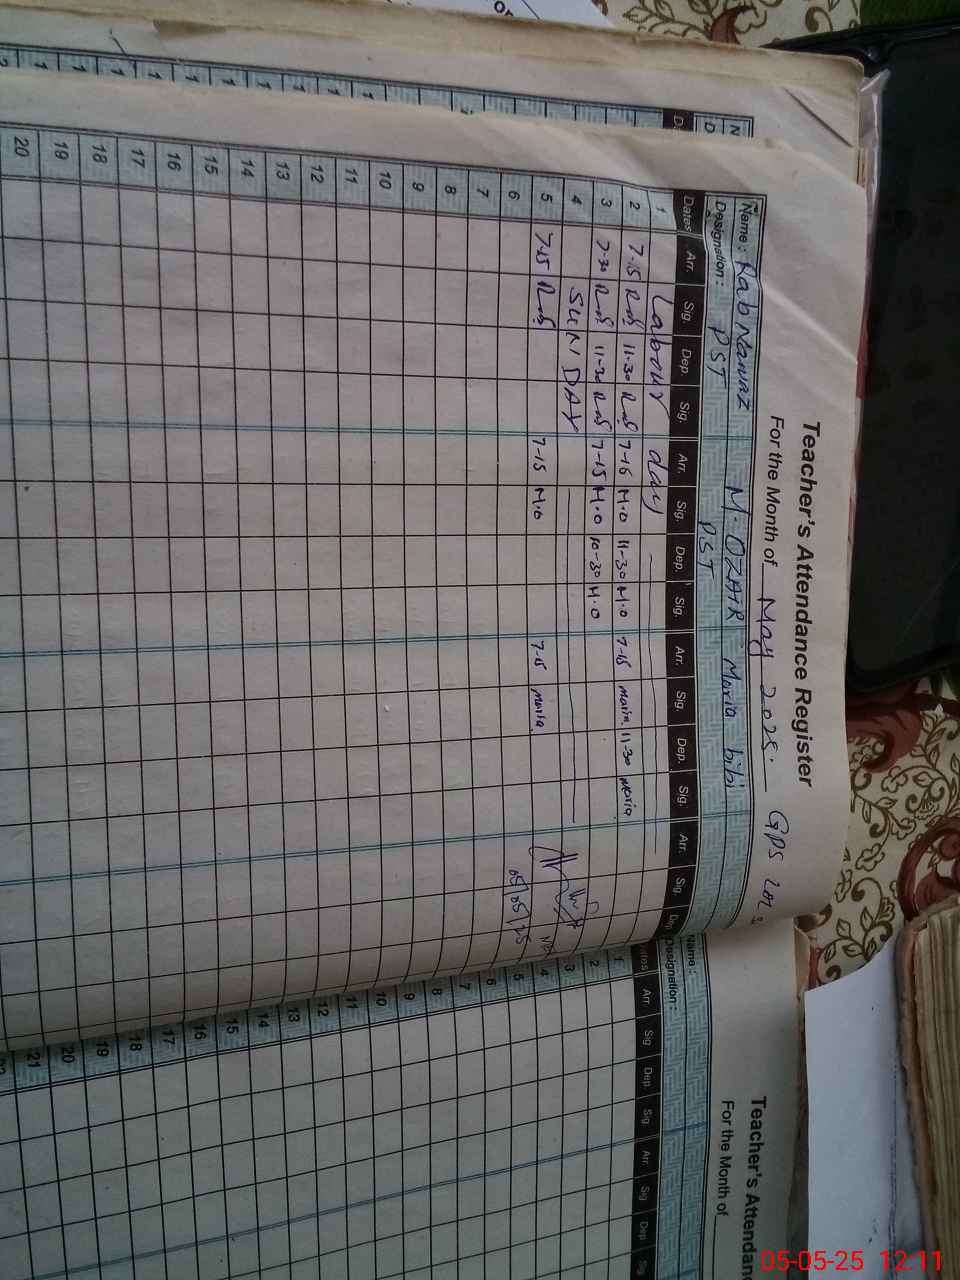 Teacher's Attendance Register
For the Month of May 2025. GPS
Name : Rab Nawaz M. OZAIR Maria bibi
Designation : PST PST
Dates Arr. Sig. Dep. Sig. Arr. Sig. Dep. Sig. Arr. Sig. Dep. Sig. Arr. Sig. Dep.
1 Labour day
2 7-15 11-30 7-15 M.O 11-30 M.O 7-15 Maria 11-30 Maria
3 7-30 11-30 7-15 M.O 10-30 M.O
4 SUNDAY
5 7-15 7-15 M.O 7-15 Maria
6 05/05/25
7
8
9
10
11
12
13
14
15
16
17
18
19
20
Teacher's Attendanc
For the Month of
Name :
Designation :
ates Arr. Sig Dep. Sig. Arr. Sig Dep Sig
1
2
3
4
5
6
7
8
9
10
11
12
13
14
15
16
17
18
19
20
21
05-05-25 12:11